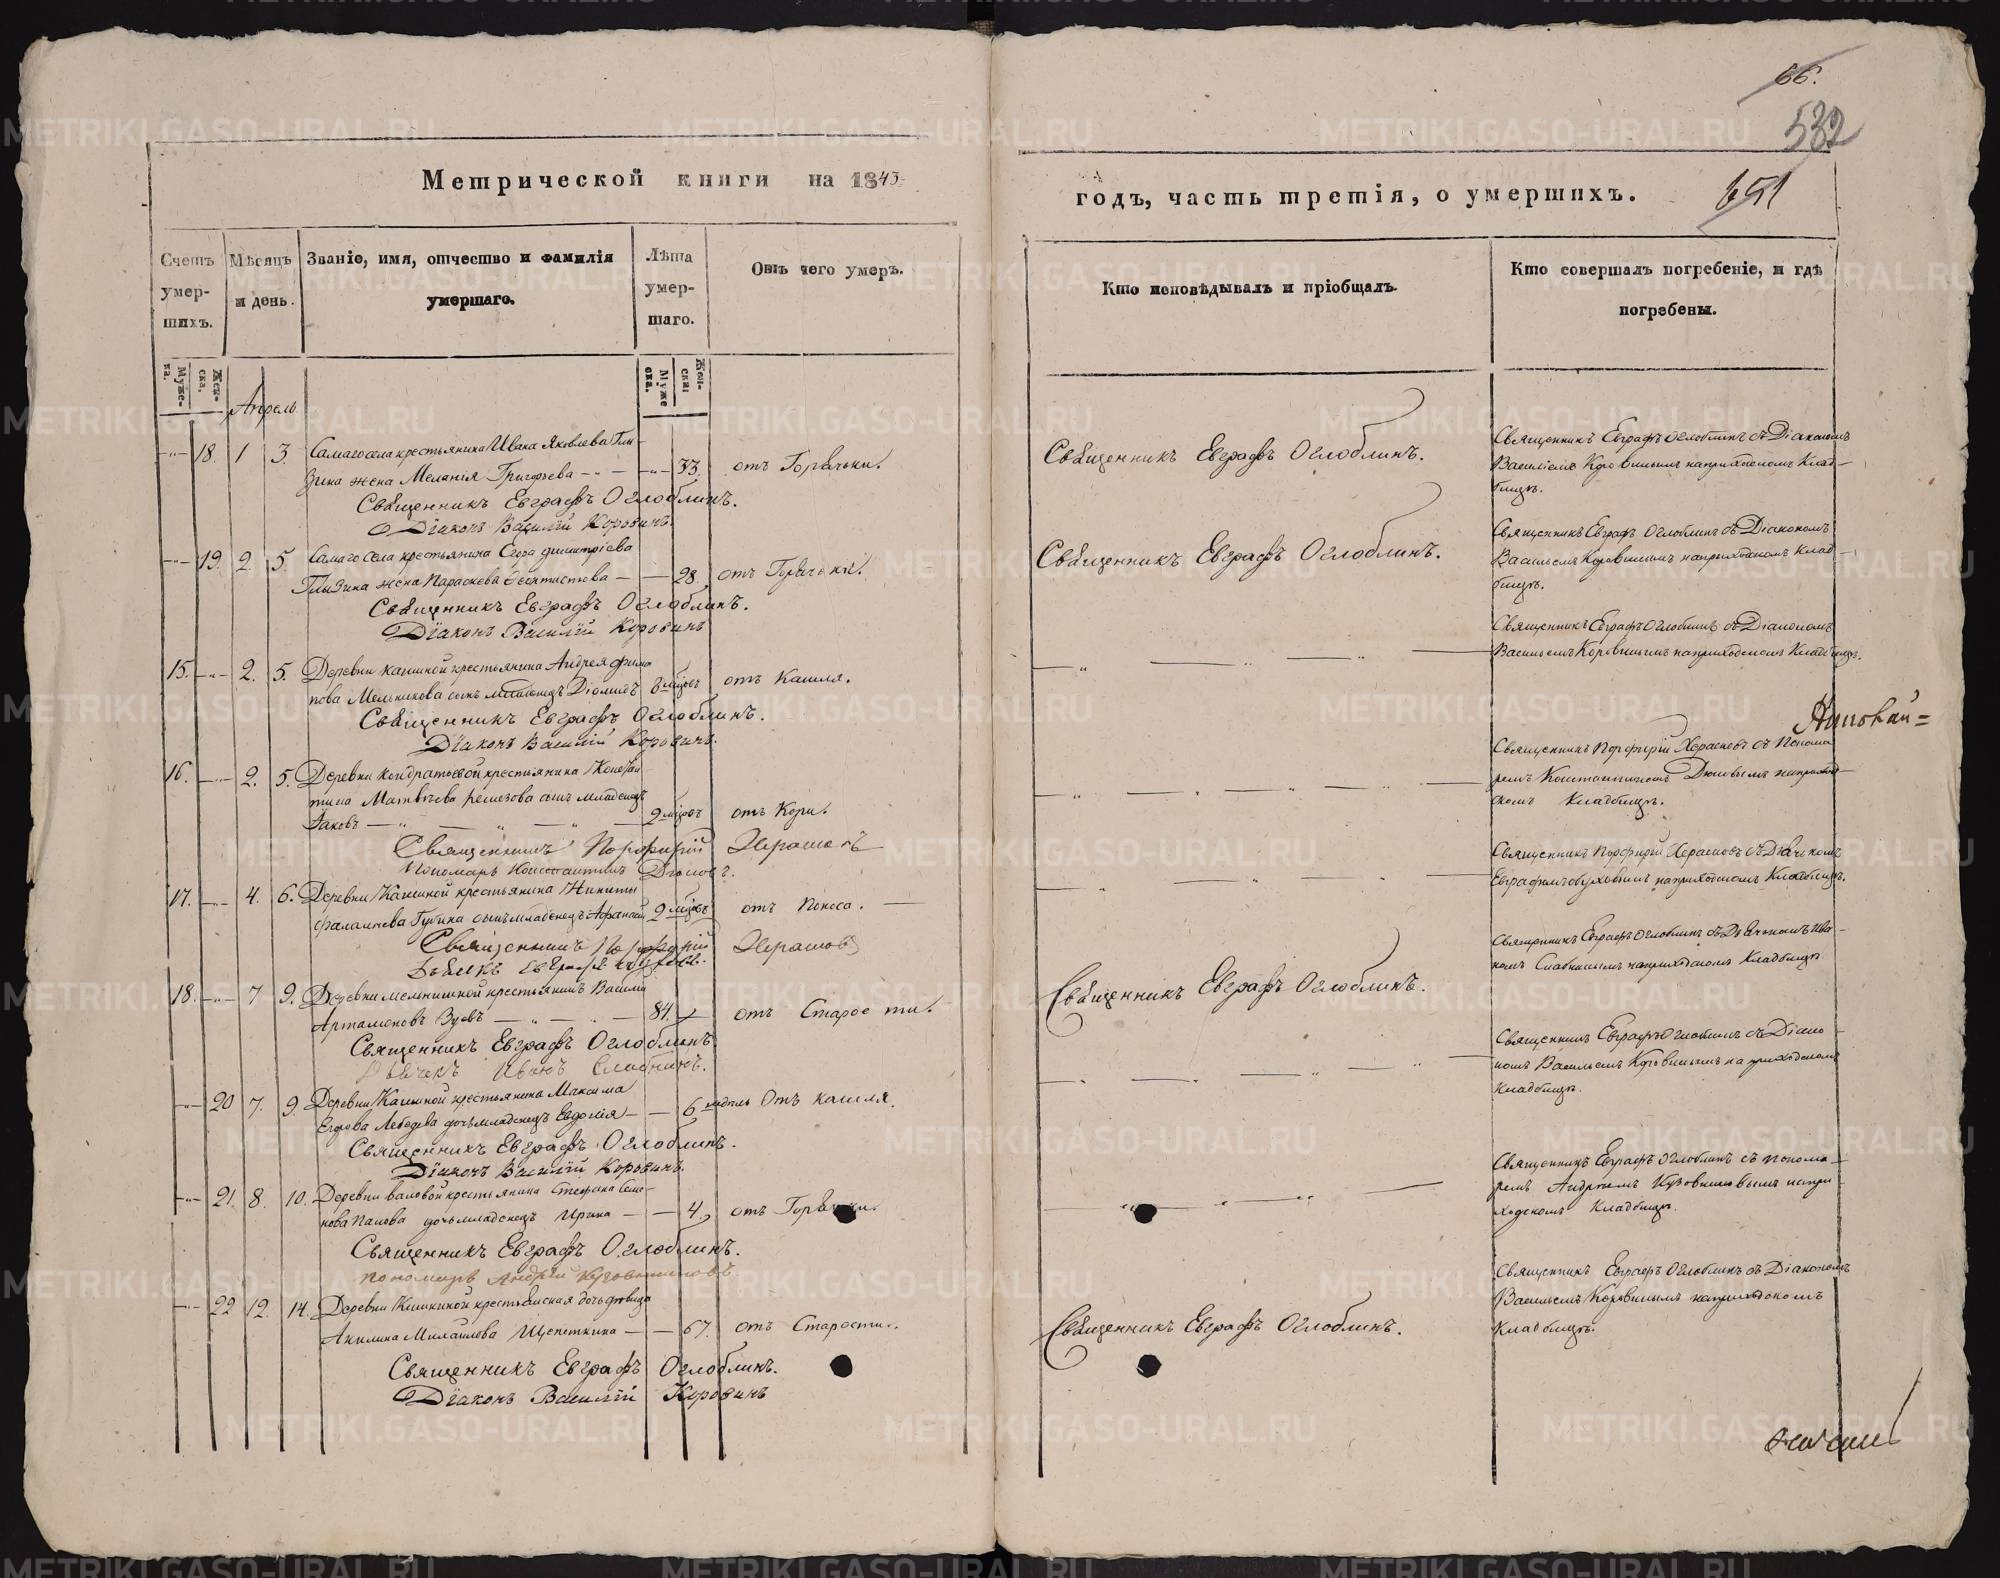 66.
532
651
Метрической книги на 1843
годъ, часть третія, о умершихъ.
Счетъ умер-шихъ.
Мѣсяцъ и день.
Званіе, имя, отчество и фамилія умершаго.
Лѣта умер-шаго.
Отъ чего умеръ.
Кто исповѣдывалъ и пріобщалъ.
Кто совершалъ погребеніе, и гдѣ погребены.
Муже-ка.
Жен-ска.
Муже ска.
Жен-ска.
Апрель
18. 1 3. Самаго села крестьянина Ивана Яковлева Глы-
зина жена Меланія Григорьева 33. отъ Горячьки.
Священникъ Евграфъ Оглоблинъ.
Діаконъ Василій Коровинъ.
Священникъ Евграфъ Оглоблинъ.
Священникъ Евграфъ Оглоблинъ съ Діакономъ
Василіемъ Коровинымъ на приходскомъ Клад-
бищѣ.
19. 2. 5. Самаго села крестьянина Егора Димитріева
Глызина жена Параскева Феоктистова 28. отъ Горячьки.
Священникъ Евграфъ Оглоблинъ.
Діаконъ Василій Коровинъ
Священникъ Евграфъ Оглоблинъ.
Священникъ Евграфъ Оглоблинъ съ Діакономъ
Васильемъ Коровинымъ на приходскомъ Клад-
бищѣ.
15. 2. 5. Деревни крестьянина Андрея Фили
пова Мельникова сынъ младенецъ 8 мцовъ отъ Кашля.
Священникъ Евграфъ Оглоблинъ.
Діаконъ Василій Коровинъ.
Священникъ Евграфъ Оглоблинъ съ Діакономъ
Васильемъ Коровинымъ на приходскомъ Кладбищѣ.
16. 2. 5. Деревни Кондратьевой крестьянина Констан-
тина Матвѣева Ремезова сынъ младенецъ
Іаковъ 9 мцовъ отъ Кори.
Священникъ Порфирій Херасковъ
Пономарь Константинъ
Священникъ Порфирій Херасковъ съ Понома
ремъ Константиномъ на приход-
скомъ Кладбищѣ.
17. 4. 6. Деревни крестьянина Никиты
Губина сынъ младенецъ Афанасій 9 мцовъ отъ Поноса.
Священникъ Порфирій Херасковъ
Священникъ Порфирій Херасковъ съ Дьячкомъ
на приходскомъ Кладбищѣ.
18. 7 9. Деревни крестьянинъ Василій
Артамоновъ Зуевъ 84. отъ Старости.
Священникъ Евграфъ Оглоблинъ
Дьячекъ Иванъ
Священникъ Евграфъ Оглоблинъ.
Священникъ Евграфъ Оглоблинъ съ Дьячкомъ Ива-
номъ на приходскомъ Кладбищѣ.
20 7. 9. Деревни крестьянина Максима
Егорова Лебедева дочь младенецъ Евдокія 6 недѣль Отъ кашля.
Священникъ Евграфъ Оглоблинъ.
Діаконъ Василій Коровинъ.
Священникъ Евграфъ Оглоблинъ съ Діако-
номъ Васильемъ Коровинымъ на приходскомъ
Кладбищѣ.
21. 8. 10. Деревни Валовой крестьянина Стефана Семе-
нова Панова дочь младенецъ Ирина 4. отъ Горячки.
Священникъ Евграфъ Оглоблинъ.
Пономарь Андрей
Священникъ Евграфъ Оглоблинъ съ Понома-
ремъ Андреемъ на при-
ходскомъ Кладбищѣ.
22 12. 14. Деревни крестьянская дочь девица
Акилина Михайлова Щепеткина 67. отъ Старости.
Священникъ Евграфъ Оглоблинъ.
Діаконъ Василій Коровинъ
Священникъ Евграфъ Оглоблинъ.
Священникъ Евграфъ Оглоблинъ съ Діакономъ
Васильемъ Коровинымъ на приходскомъ
Кладбищѣ.
METRIKI.GASO-URAL.RU